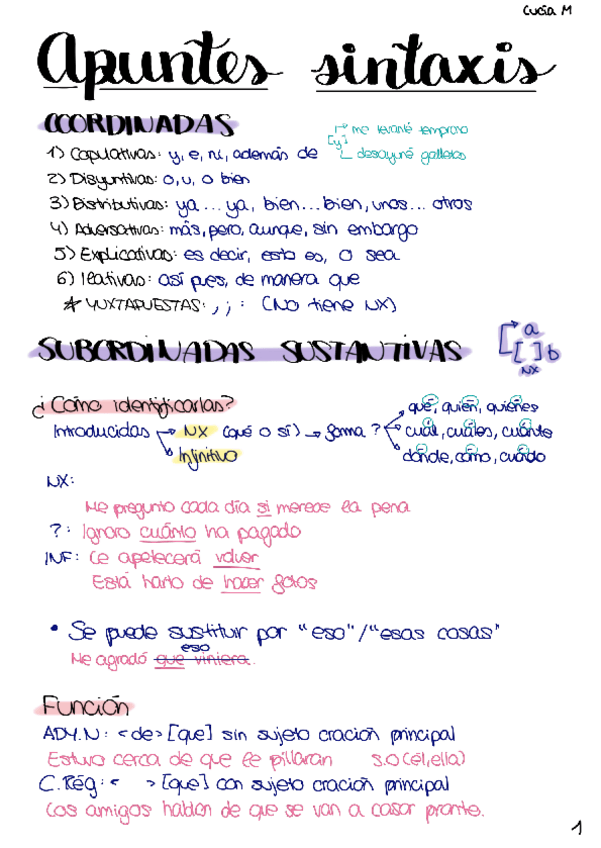 Lucía M
Apuntes sintaxis
COORDINADAS
1) Copulativas: y, e, ni, además de
[y] me levanté temprano
desayuné galletas
2) Disyuntivas: o, u, o bien
3) Distributivas: ya... ya, bien... bien, unos... otros
4) Adversativas: más, pero, aunque, sin embargo
5) Explicativas: es decir, esto es, o sea
6) Ilativas: así pues, de manera que
* YUXTAPUESTAS: , ; : (NO tiene NX)
SUBORDINADAS SUSTANTIVAS
[ a
[ ] b
NX
¿Cómo identificarlas?
Introducidas → NX (que o si) → forma ? qué, quién, quiénes
cuál, cuáles, cuánto
dónde, cómo, cuándo
Infinitivo
NX:
Me pregunto cada día si merece la pena
?: Ignoro cuánto ha pagado
INF: Le apetecerá volver
Está harto de hacer fotos
• Se puede sustituir por "eso"/"esas cosas"
eso
Me agradó que viniera.
Función
ADY.N: <de> [que] sin sujeto oración principal
Estuvo cerca de que le pillaran S.O (él, ella)
C.Rég: < > [que] con sujeto oración principal
Los amigos hablan de que se van a casar pronto.
1